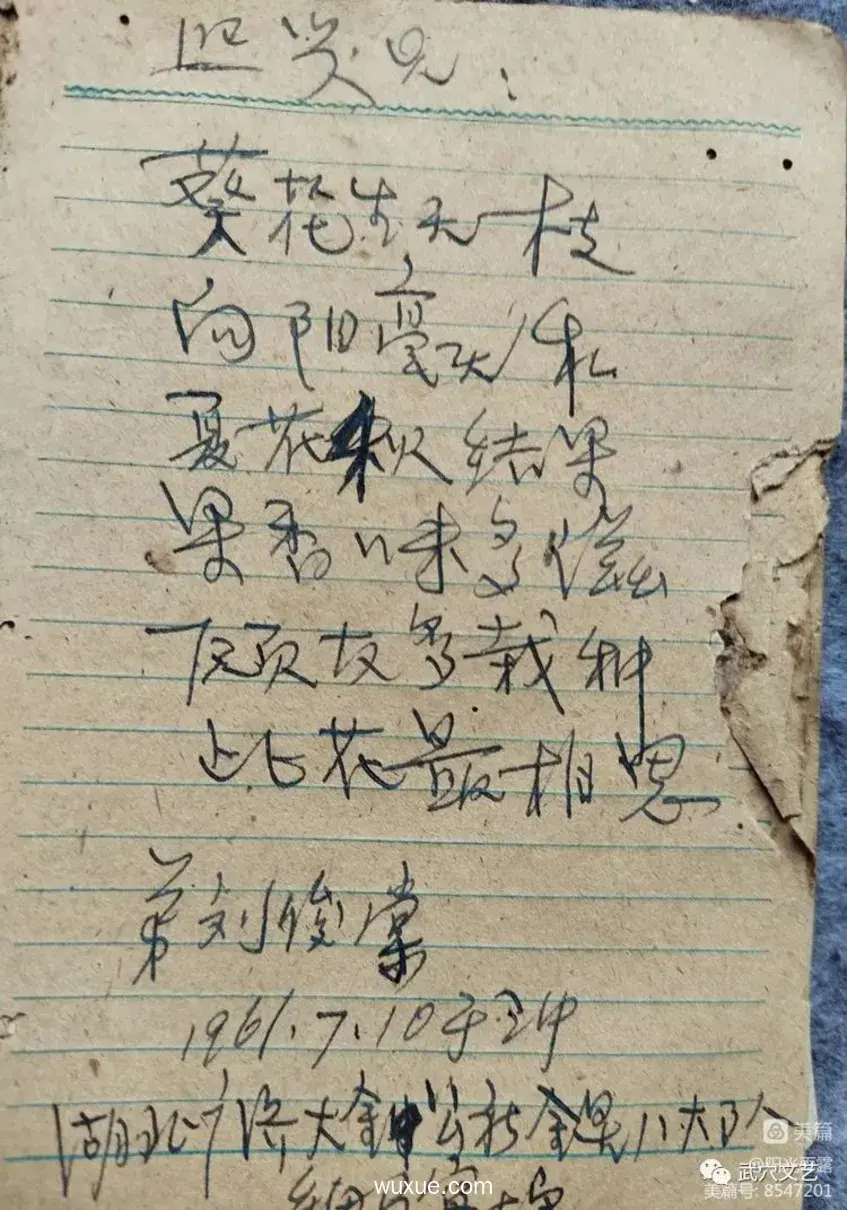 照兄：
葵花生无枝
向阳毫无私
夏花秋结果
果香味多滋
愿故多栽种
此花最相思
弟刘俊棠
1961.7.10于
湖北广济大金公社金八大队
美篇
@阳光雨露
武穴文艺
美篇号: 8547201
wuxue.com